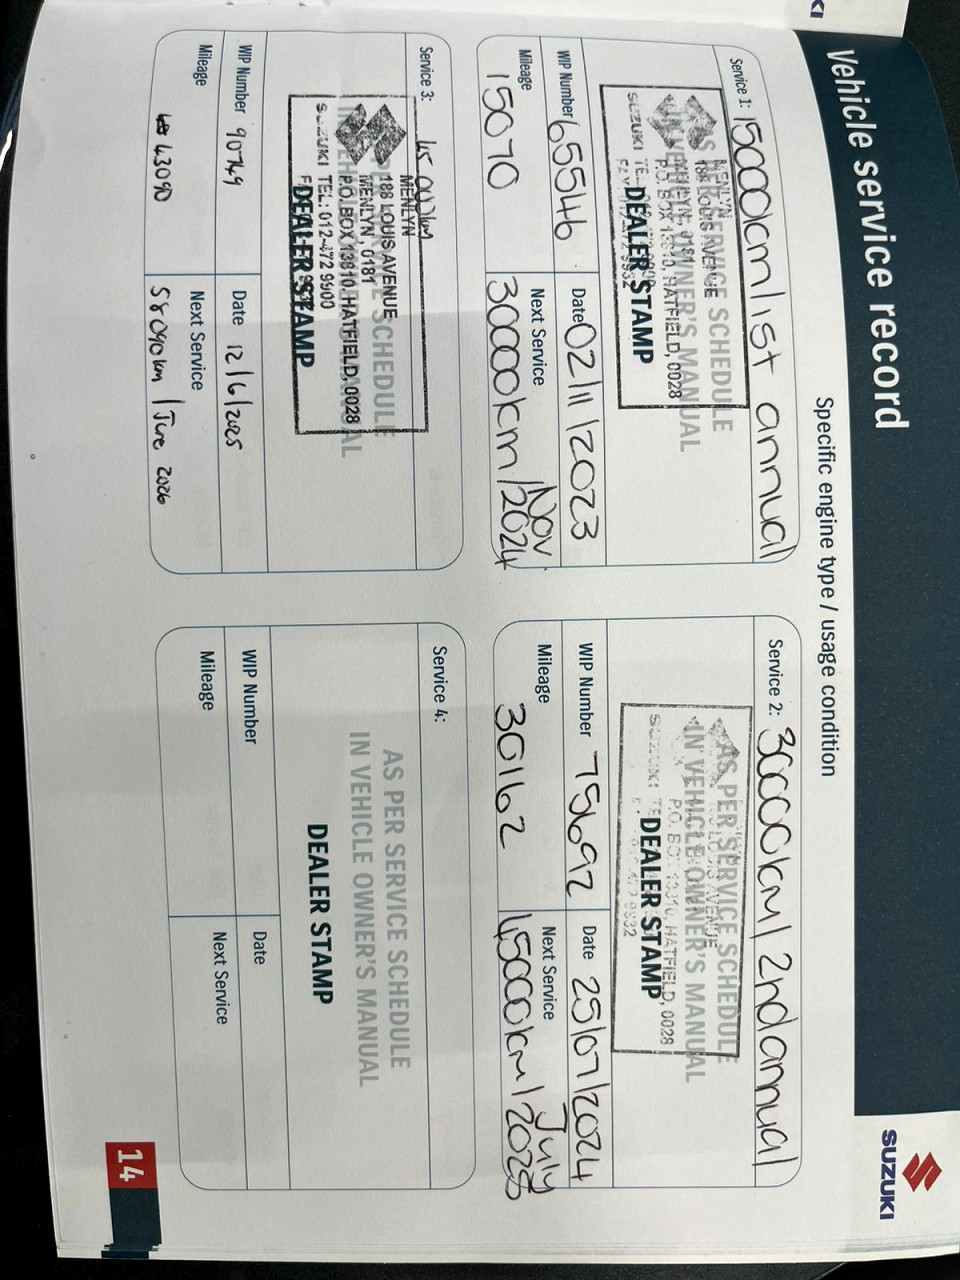 Vehicle service record
SUZUKI
Specific engine type / usage condition
Service 1: 15000km/1st annual
AS PER SERVICE SCHEDULE
IN VEHICLE OWNER'S MANUAL
MENLYN
188 LOUIS AVENUE
MENLYN, 0181
P.O. BOX 13810, HATFIELD, 0028
SUZUKI
DEALER STAMP
WIP Number 65546
Date 02/11/2023
Mileage 15070
Next Service 30000km/Nov 2024
Service 2: 30000km/2nd annual
AS PER SERVICE SCHEDULE
IN VEHICLE OWNER'S MANUAL
LOUIS AVENUE
P.O. BOX 13810, HATFIELD, 0028
SUZUKI
DEALER STAMP
WIP Number 75692
Date 25/07/2024
Mileage 30162
Next Service 45000km/July 2025
Service 3: 45000km
MENLYN
188 LOUIS AVENUE
MENLYN, 0181
P.O. BOX 13810, HATFIELD, 0028
SUZUKI TEL: 012-472 9900
DEALER STAMP
WIP Number 90749
Date 12/6/2025
Mileage 43090
Next Service 58090km/June 2026
Service 4:
AS PER SERVICE SCHEDULE
IN VEHICLE OWNER'S MANUAL
DEALER STAMP
WIP Number
Date
Mileage
Next Service
14